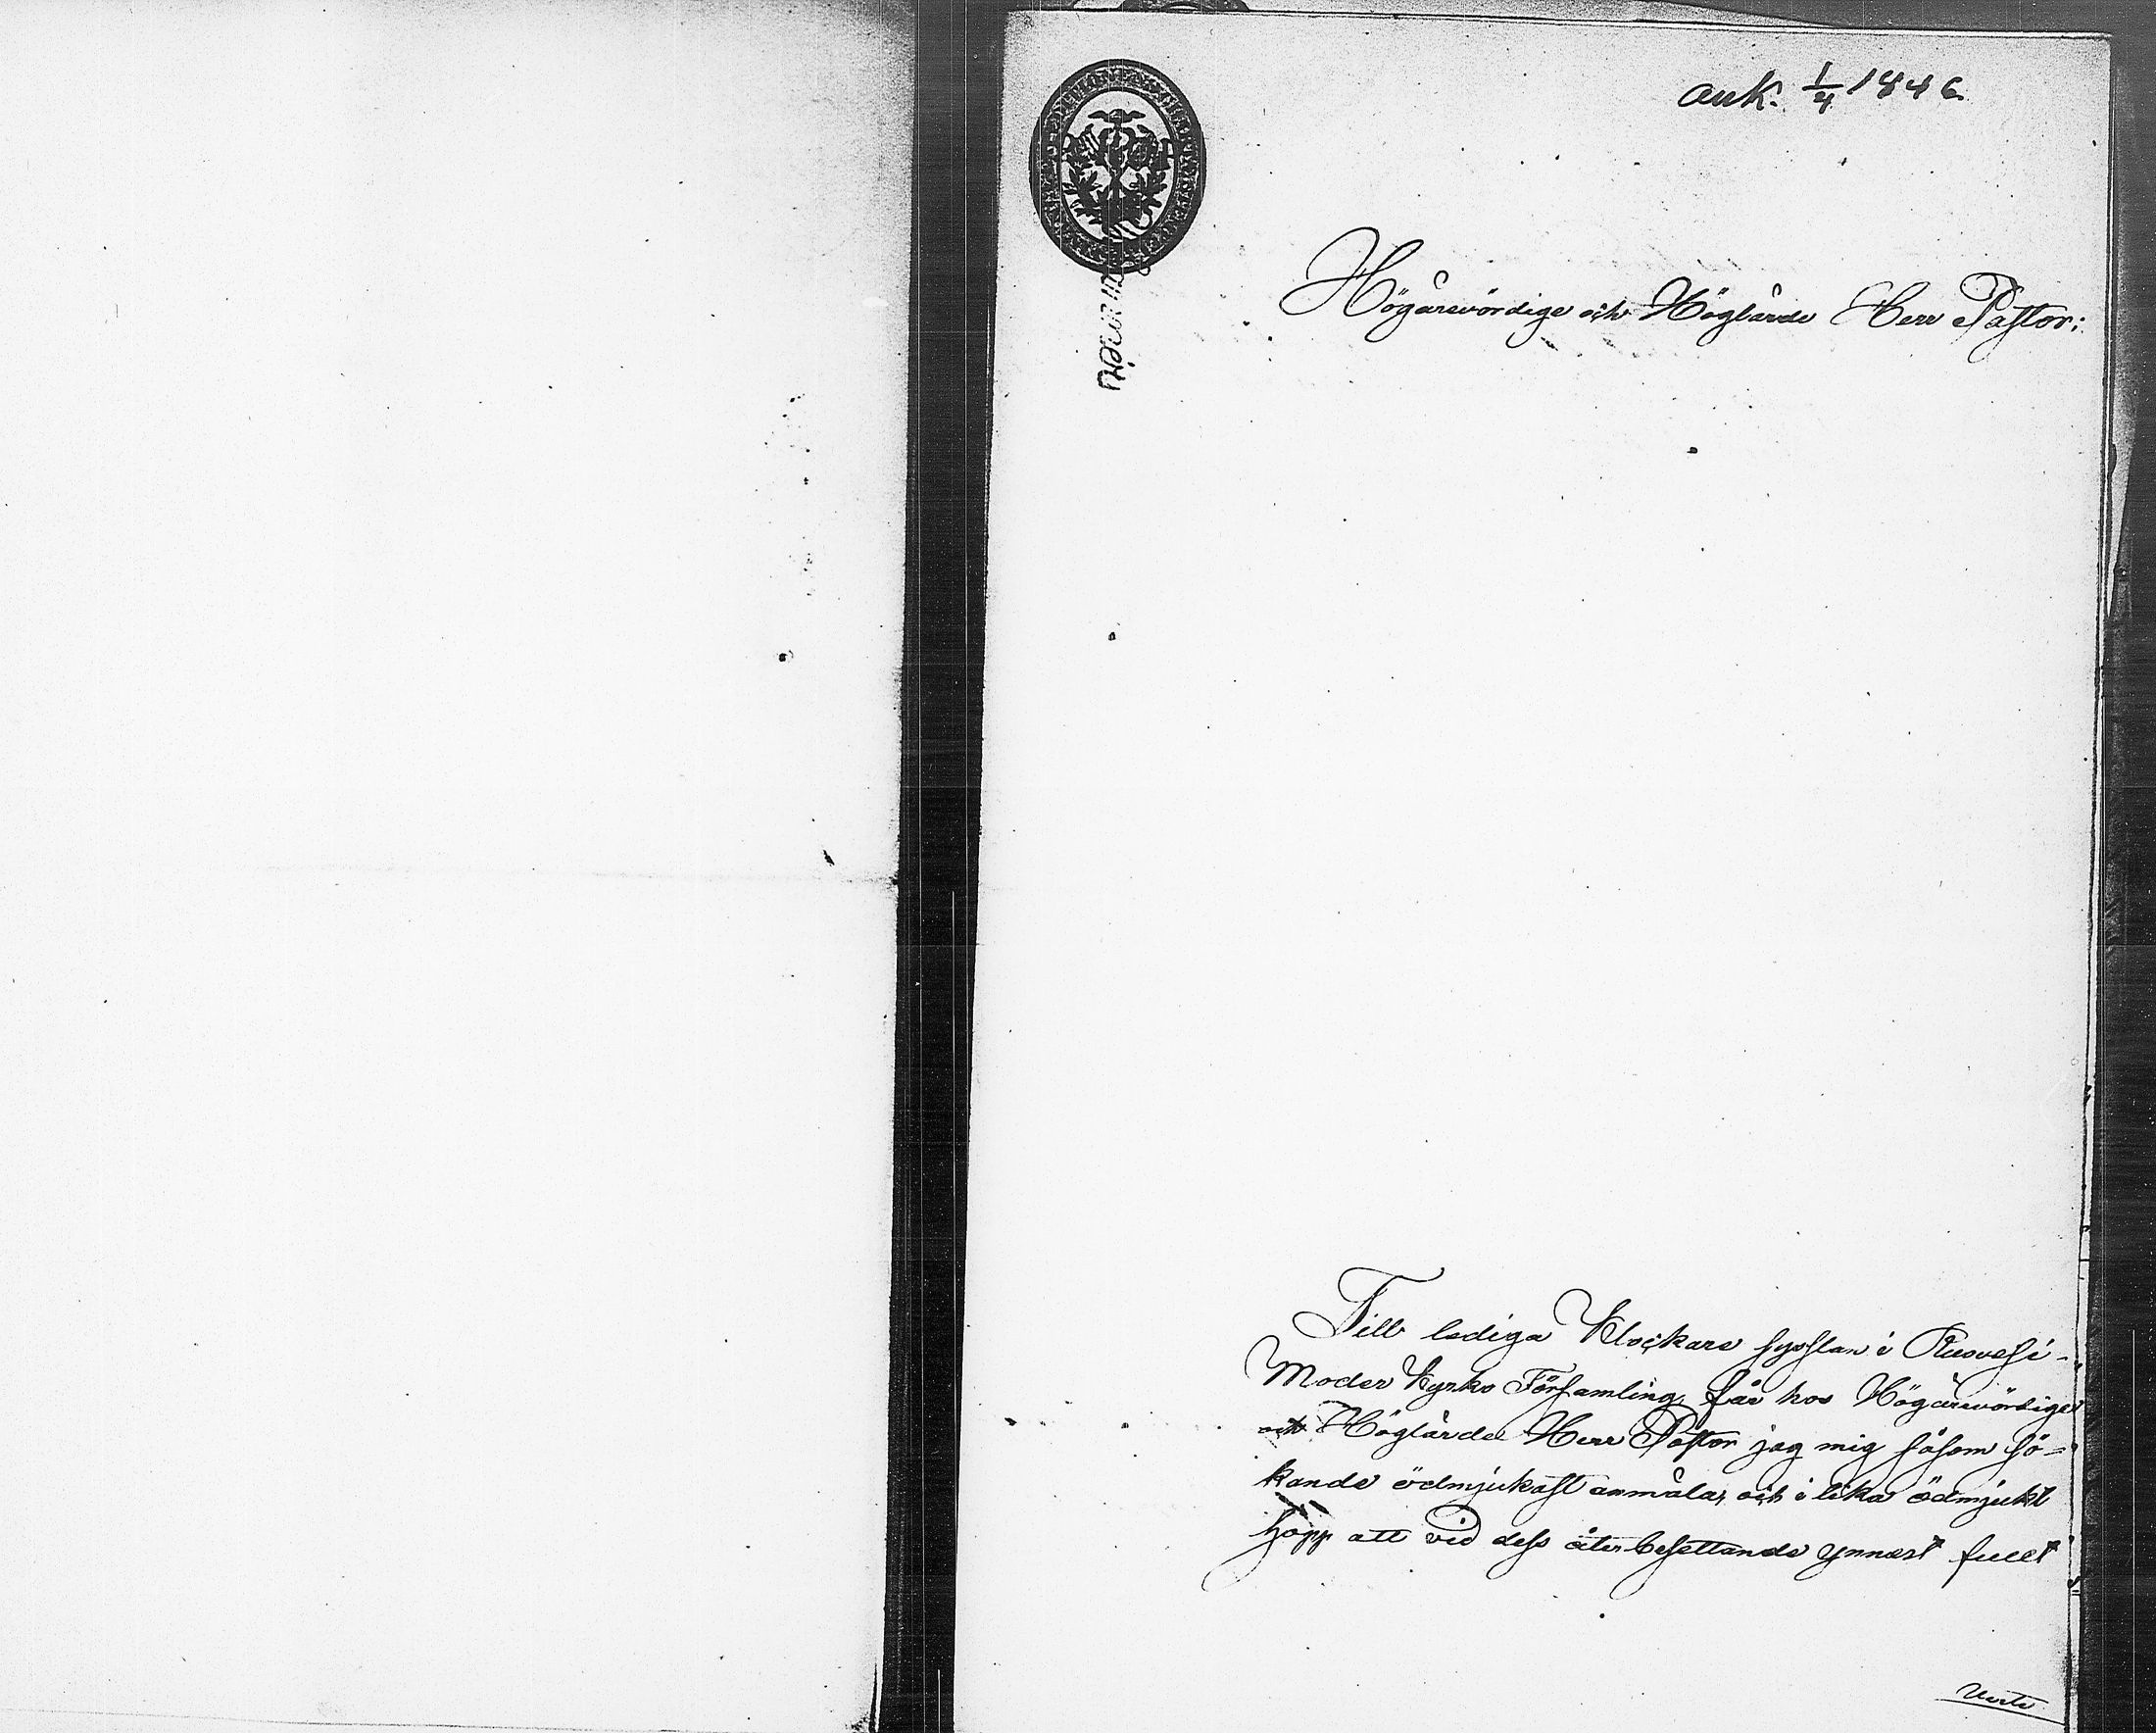 ank. 1/4 1846
Högärevördige och Höglärde Herr Pastor:
Till lediga Klockare sysslan i Ruovesi-
Moder Kyrko Församling får hos Högärevördige
och Höglärde Herr Pastor jag mig såsom sö-
kande ödmjukast anmäla, och i lika ödmjukt
hopp att vid dess återbesättande ynnest fullt
Verte